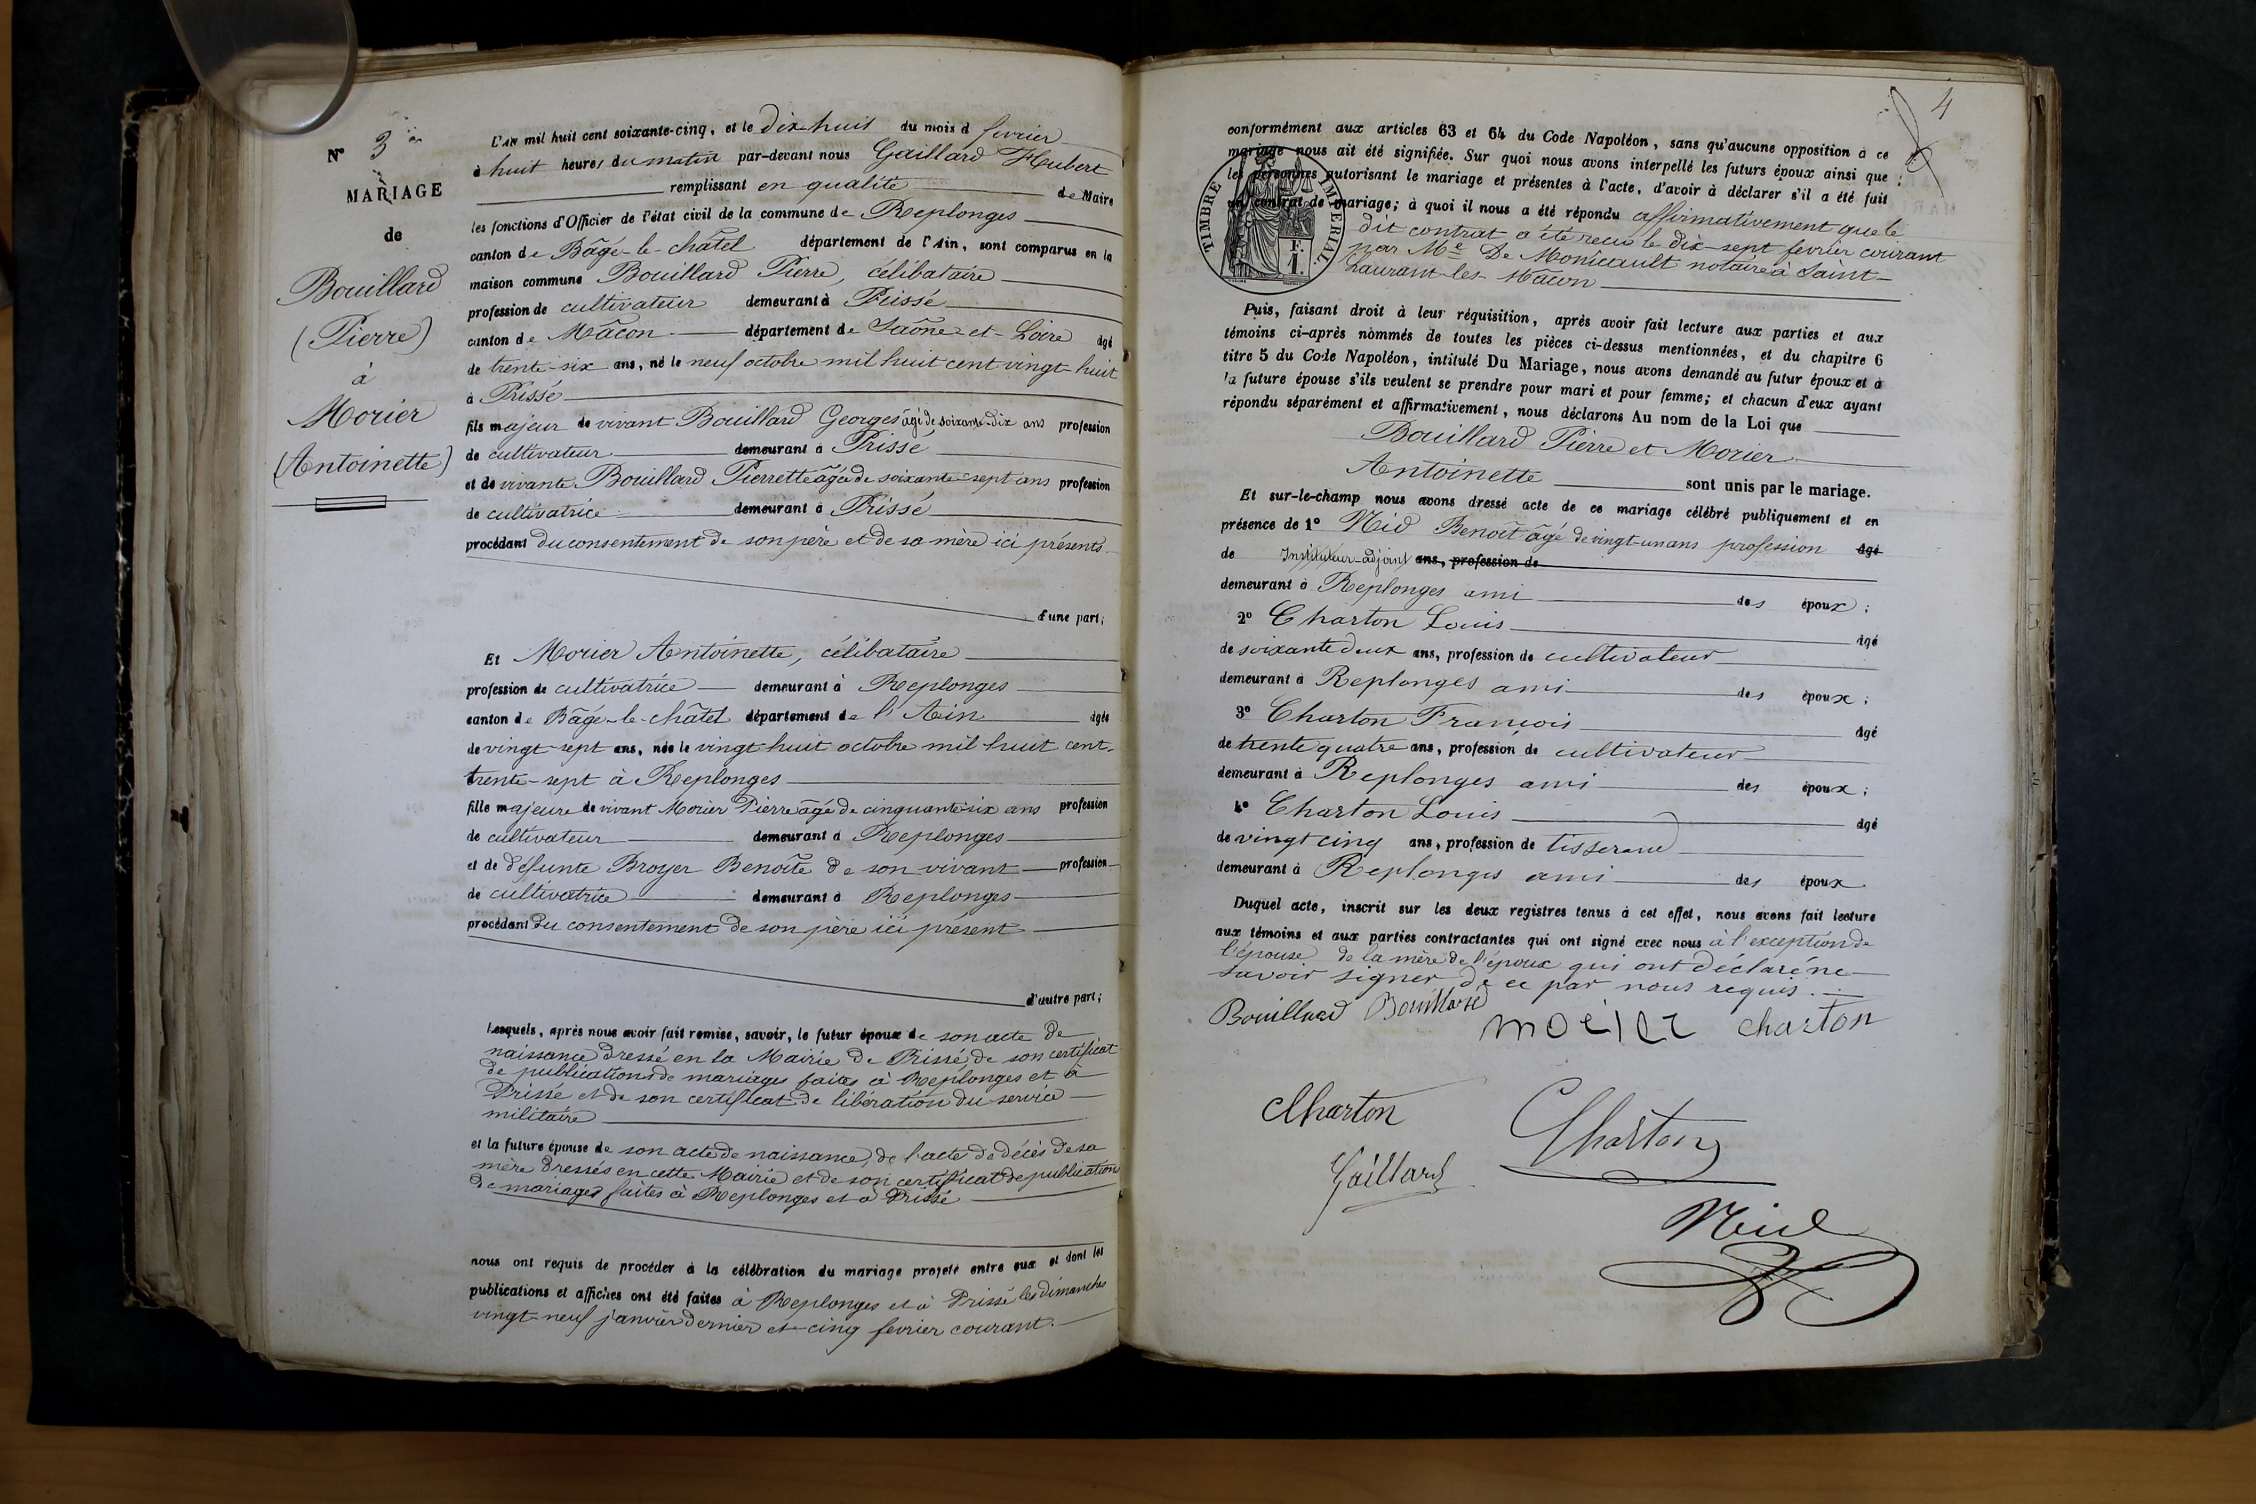 N° 3
MARIAGE
de
Bouillard
(Pierre)
à
Morier
(Antoinette)
L'AN mil huit cent soixante-cinq, et le dix-huit du mois d février
à huit heures du matin par-devant nous Gaillard Hubert
remplissant en qualité de Maire
les fonctions d'Officier de l'état civil de la commune de Replonges
canton de Bâgé-le-châtel département de l'Ain, sont comparus en la
maison commune Bouillard Pierre, célibataire
profession de cultivateur demeurant à Prissé
canton de Mâcon département de Saône-et-Loire âgé
de trente-six ans, né le neuf octobre mil huit cent vingt-huit
à Prissé
fils majeur de vivant Bouillard Georges âgé de soixante-dix ans profession
de cultivateur demeurant à Prissé
et de vivante Bouillard Pierrette âgée de soixante-sept ans profession
de cultivatrice demeurant à Prissé
procédant du consentement de son père et de sa mère ici présents
d'une part;
Et Morier Antoinette, célibataire
profession de cultivatrice demeurant à Replonges
canton de Bâgé-le-châtel département de l'Ain âgée
de vingt-sept ans, née le vingt-huit octobre mil huit cent-
trente-sept à Replonges
fille majeure de vivant Morier Pierre âgé de cinquante-six ans profession
de cultivateur demeurant à Replonges
et de défunte Broyer Benoîte de son vivant profession
de cultivatrice demeurant à Replonges
procédant du consentement de son père ici présent
d'autre part;
Lesquels, après nous avoir fait remise, savoir, le futur époux de son acte de
naissance dressé en la Mairie de Prissé, de son certificat
de publications de mariages faites à Replonges et à
Prissé et de son certificat de libération du service
militaire
et la future épouse de son acte de naissance, de l'acte de décès de sa
mère dressés en cette Mairie et de son certificat de publications
de mariages faites à Replonges et à Prissé
nous ont requis de procéder à la célébration du mariage projeté entre eux et dont les
publications et affiches ont été faites à Replonges et à Prissé les dimanches
vingt-neuf janvier dernier et cinq février courant.
4
conformément aux articles 63 et 64 du Code Napoléon, sans qu'aucune opposition à ce
mariage nous ait été signifiée. Sur quoi nous avons interpellé les futurs époux ainsi que
les personnes autorisant le mariage et présentes à l'acte, d'avoir à déclarer s'il a été fait
un contrat de mariage; à quoi il nous a été répondu affirmativement que le
dit contrat a été recu le dix-sept février courant
par Me De Monicault notaire à Saint-
Laurent-les-Mâcon
TIMBRE IMPÉRIAL
1 F.
Puis, faisant droit à leur réquisition, après avoir fait lecture aux parties et aux
témoins ci-après nommés de toutes les pièces ci-dessus mentionnées, et du chapitre 6
titre 5 du Code Napoléon, intitulé Du Mariage, nous avons demandé au futur époux et à
la future épouse s'ils veulent se prendre pour mari et pour femme; et chacun d'eux ayant
répondu séparément et affirmativement, nous déclarons Au nom de la Loi que
Bouillard Pierre et Morier
Antoinette sont unis par le mariage.
Et sur-le-champ nous avons dressé acte de ce mariage célébré publiquement et en
présence de 1° Nid Benoît âgé de vingt-un ans profession âgé
de Instituteur-adjoint ans, profession de
demeurant à Replonges ami des époux;
2° Charton Louis âgé
de soixante deux ans, profession de cultivateur
demeurant à Replonges ami des époux;
3° Charton François âgé
de trente quatre ans, profession de cultivateur
demeurant à Replonges ami des époux;
4° Charton Louis âgé
de vingt cinq ans, profession de tisserand
demeurant à Replonges ami des époux
Duquel acte, inscrit sur les deux registres tenus à cet effet, nous avons fait lecture
aux témoins et aux parties contractantes qui ont signé avec nous à l'exception de
l'épouse de la mère de l'époux qui ont déclaré ne
savoir signer de ce par nous requis.
Bouillard Bouillard
Morier Charton
Charton Charton
Gaillard
Nid